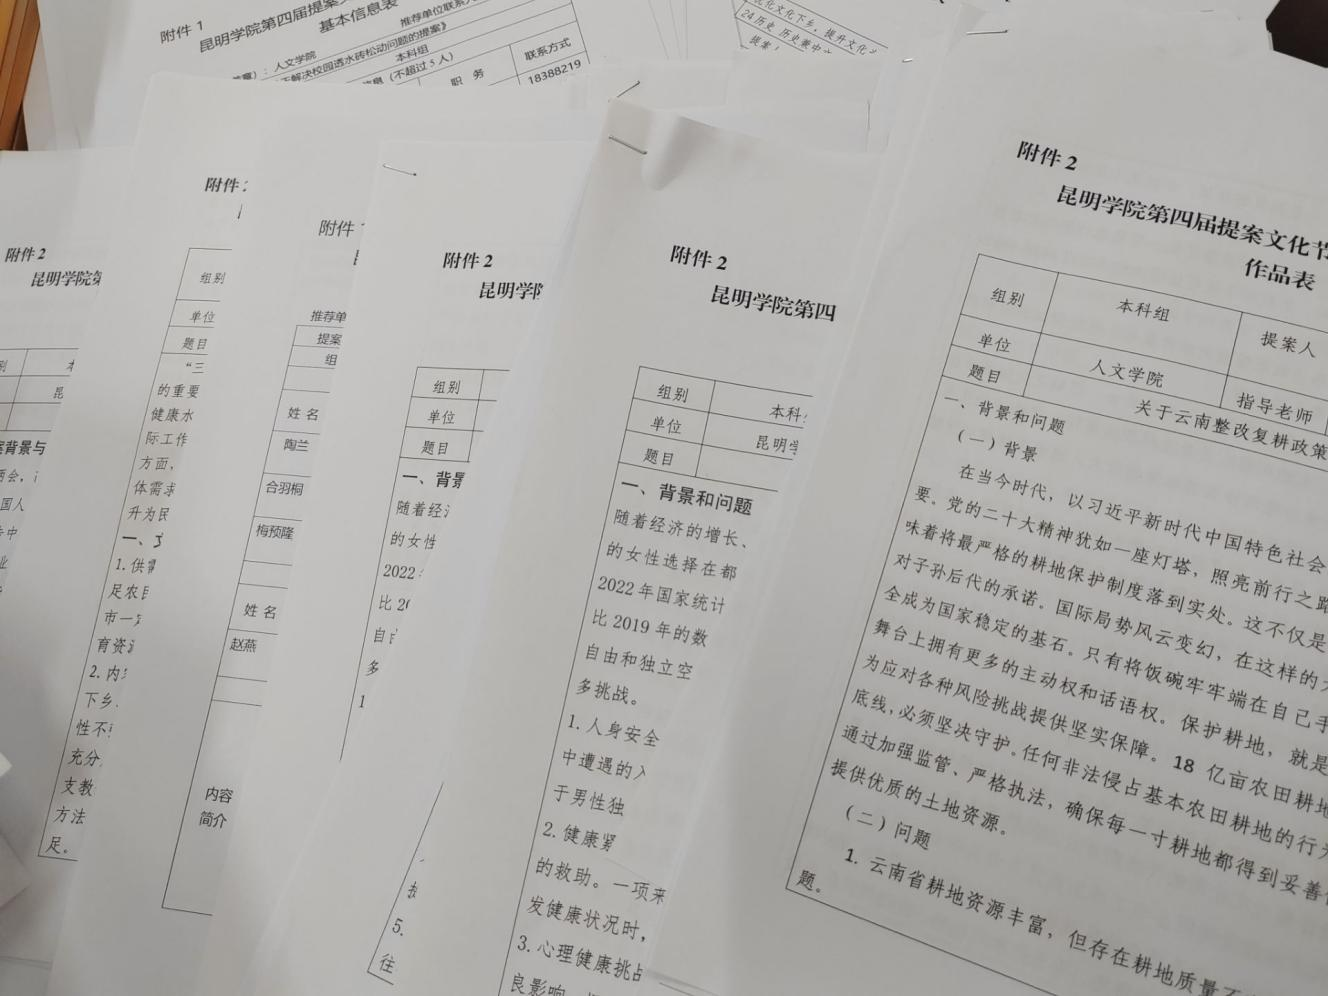 附件 1
昆明学院第四届提案文
基本信息表
推荐单位联系人
人文学院
解决校园透水砖松动问题的提案》
本科组
（不超过 5 人）
职 务
联系方式
18388219
优化文化下乡，提升文化
24 历史
提案人
附件 2
昆明学院第
昆
案背景与
两会，
国人
中
业
附件
组别
单位
题目
“三
的重要
健康水
际工作
方面，
体需求
升为民
一、
1. 供需
足农民
市一定
育资源
2. 内容
下乡
性不
充分
支教
方法
足。
附件
推荐单
提案
组
姓 名
陶兰
合羽桐
梅预隆
姓 名
赵燕
内容
简介
附件 2
昆明学院
组别
单位
题目
一、背景
随着经济
的女性
2022
比 20
自由
多
1
5.
往
附件 2
昆明学院第四
组别
本科组
单位
昆明学
题目
一、背景和问题
随着经济的增长、
的女性选择在都
2022 年国家统计
比 2019 年的数
自由和独立空
多挑战。
1. 人身安全
中遭遇的入
于男性独
2. 健康紧
的救助。一项来
发健康状况时，
3. 心理健康挑战
良影响
附件 2
昆明学院第四届提案文化节
作品表
组别
本科组
提案人
单位
人文学院
指导老师
题目
关于云南整改复耕政策
一、背景和问题
（一）背景
在当今时代，以习近平新时代中国特色社会
要。党的二十大精神犹如一座灯塔，照亮前行之路
味着将最严格的耕地保护制度落到实处。这不仅是
对子孙后代的承诺。国际局势风云变幻，在这样的大
全成为国家稳定的基石。只有将饭碗牢牢端在自己手
舞台上拥有更多的主动权和话语权。保护耕地，就是
为应对各种风险挑战提供坚实保障。18 亿亩农田耕地
底线，必须坚决守护。任何非法侵占基本农田耕地的行为
通过加强监管、严格执法，确保每一寸耕地都得到妥善
提供优质的土地资源。
（二）问题
1. 云南省耕地资源丰富，但存在耕地质量不
题。